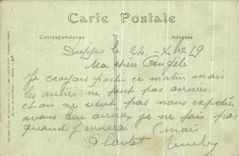 Carte Postale
Correspondance Adresse
Dieppe le 24 - Xbre 19
Ma chère Angèle
Je croyais partir ce matin mais
les autres ne sont pas arrivés
et on ne veut pas nous
avant leur arrivée je ne sais pas
quand j'arriverai mais
A bientôt